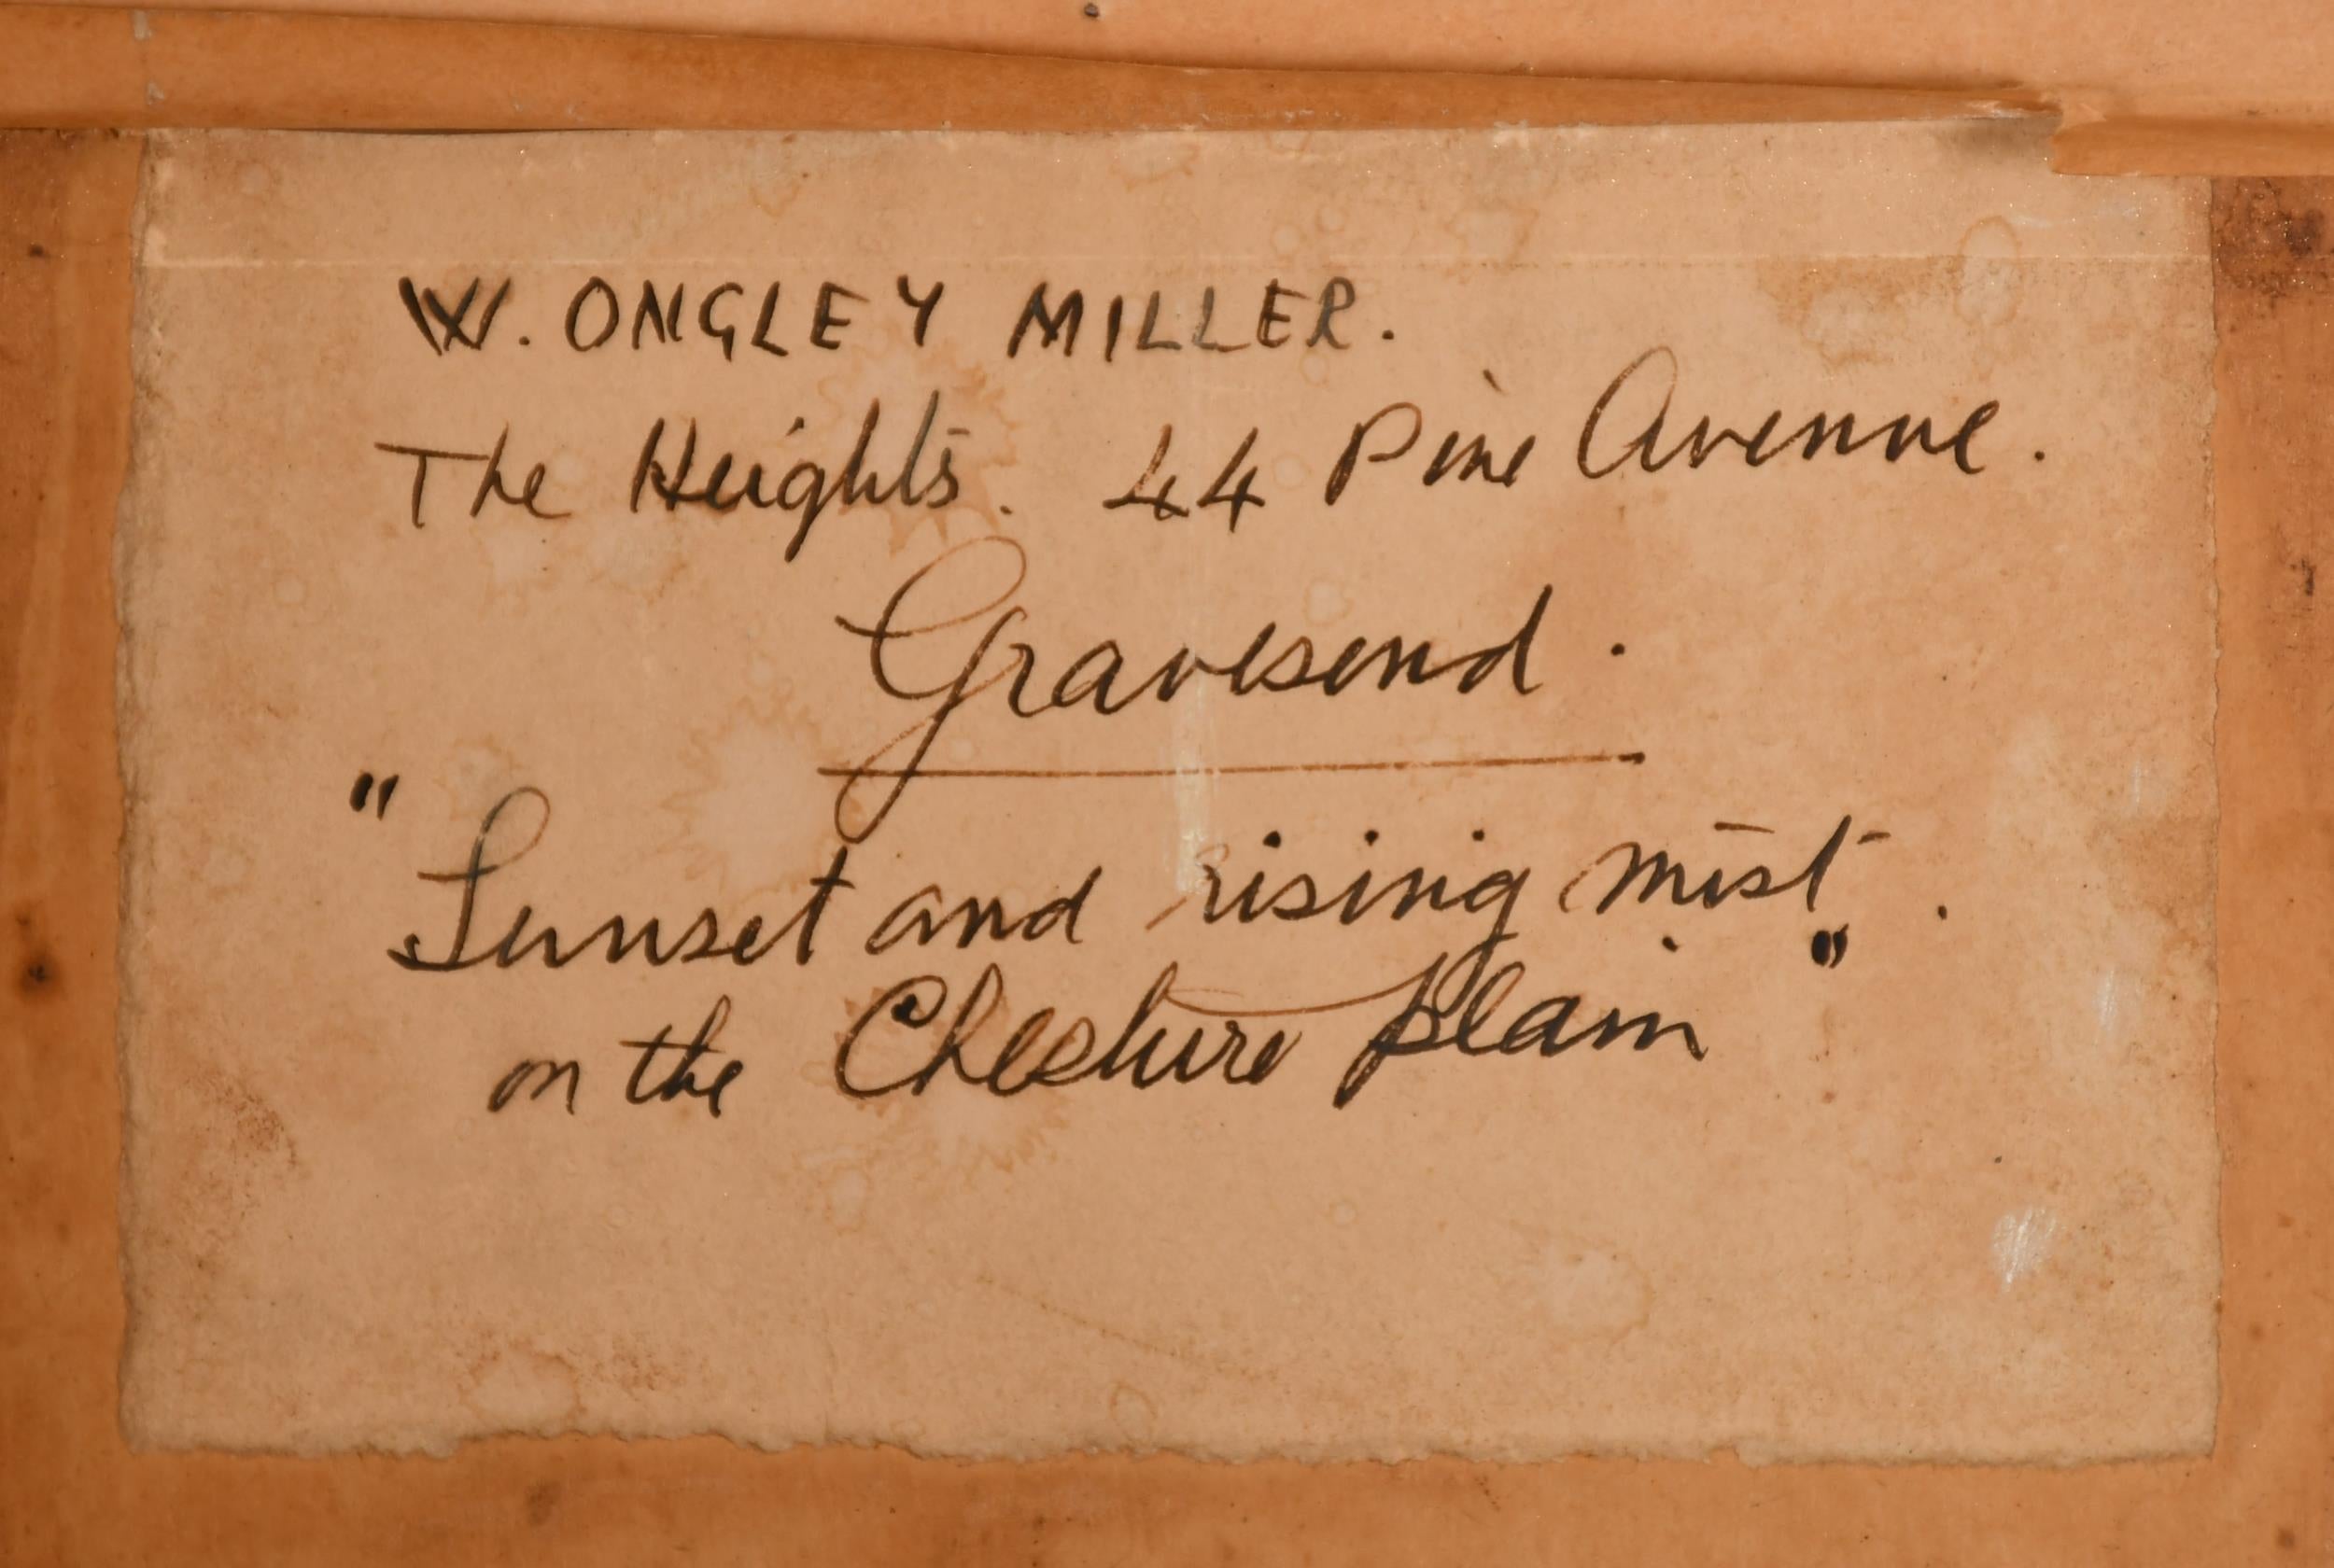 W. ONGLEY MILLER.
The Heights. 44 Pine Avenue.
Gravesend.
"Sunset and rising mist.
on the Cheshire plain"